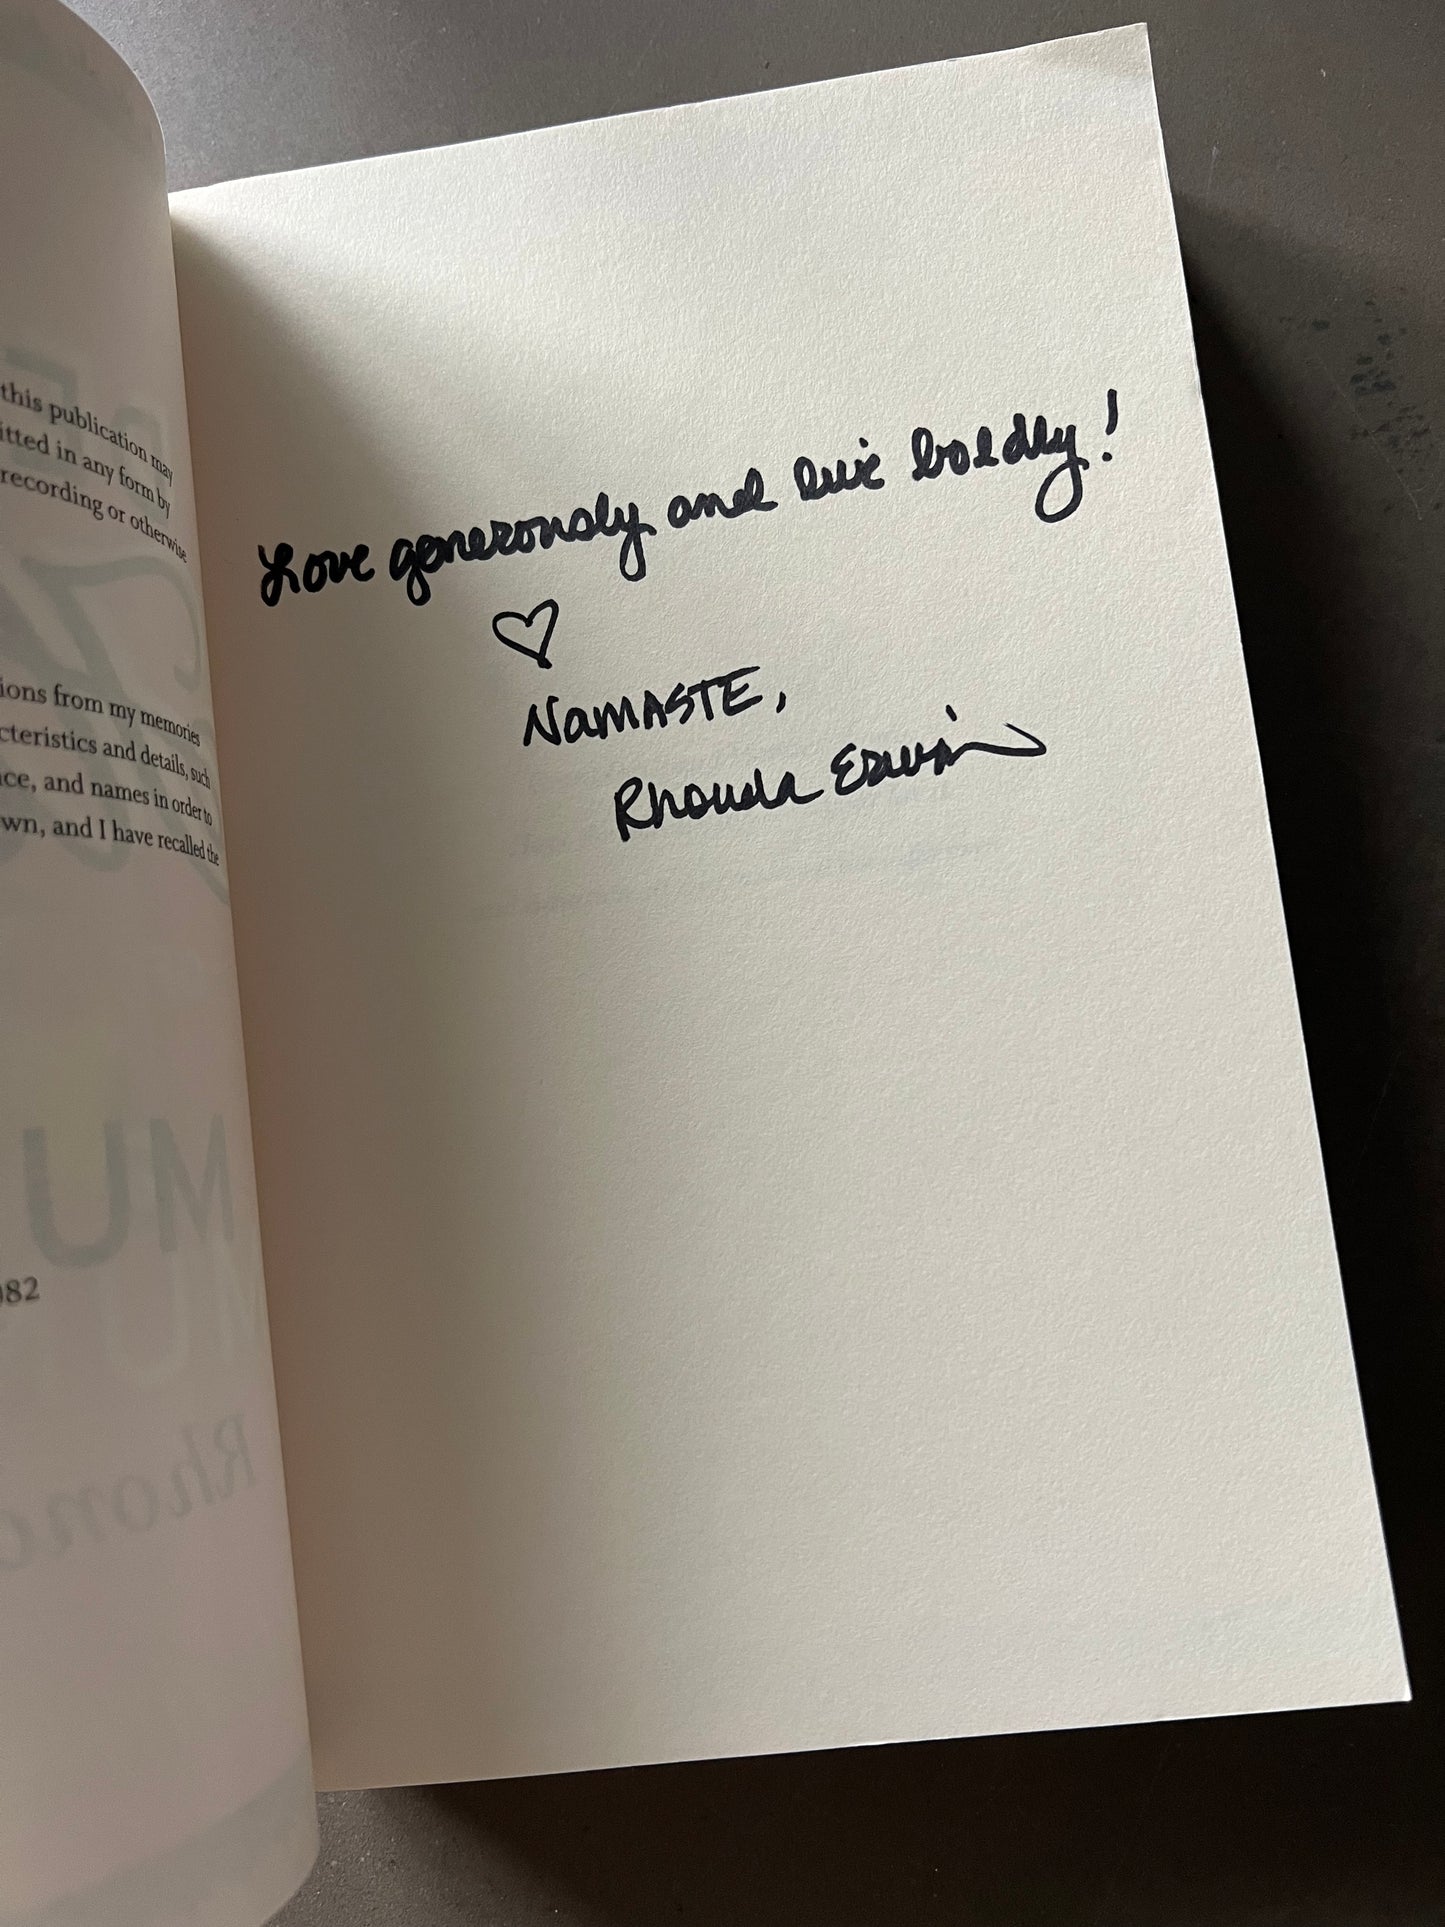 this publication may
itted in any form by
recording or otherwise
ions from my memories
cteristics and details, such
nce, and names in order to
wn, and I have recalled the
082
MU
Rhond
Love generously and live boldly!
♡
NAMASTE,
Rhonda Erwin